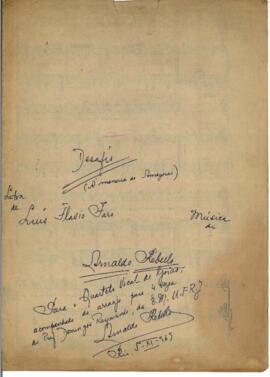 Desafio
(À maneira de Amazonas)
Letra
de
Luis Flavio Faro
Música
de
Arnaldo Rebello
Para o Quarteto Vocal de Goiás,
acompanhado de arranjo para 4 vozes
do Prof. Domingos Raymundo, da E.M. U.F.R.J.
Arnaldo Rebello
Rio, 5-XI-969